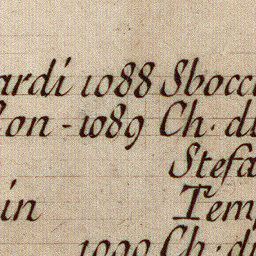 ardi 1088 Sbocc
on - 1089 Ch. d
Stefa
in Tem
1090 Ch. d